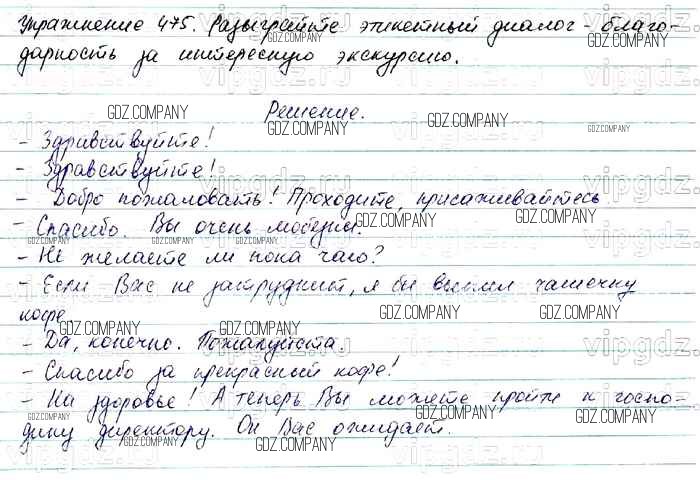 Упражнение 475. Разыграйте этикетный диалог - благо-
дарность за интересную экскурсию.
Решение.
- Здравствуйте!
- Здравствуйте!
- Добро пожаловать! Проходите, присаживайтесь
- Спасибо. Вы очень любезны.
- Не желаете ли пока чаю?
- Если Вас не затруднит, я бы выпил чашечку
кофе.
- Да, конечно. Пожалуйста.
- Спасибо за прекрасный кофе!
- На здоровье! А теперь Вы можете пройти к госпо-
дину директору. Он Вас ожидает.